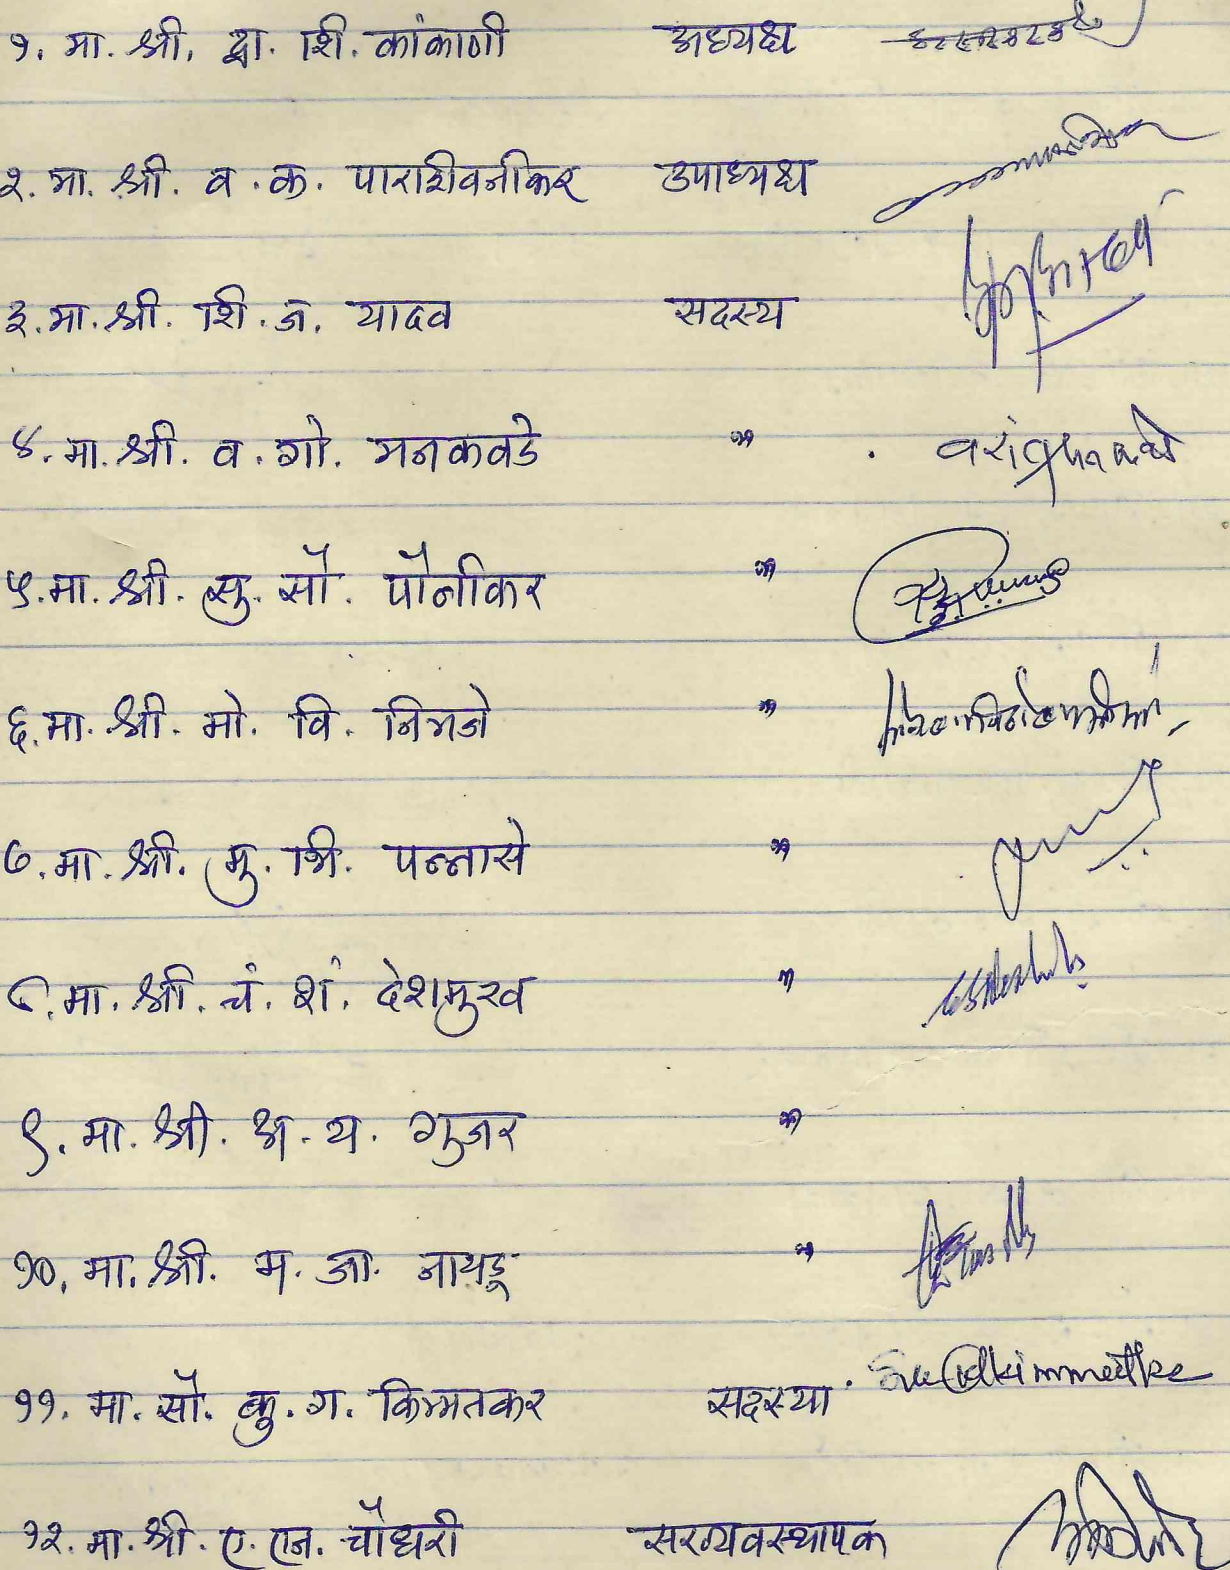 १. मा. श्री. द्वा. शि. कांकाणी अध्यक्ष
२. मा. श्री. व. क. पाराशीवनीकर उपाध्यक्ष
३. मा. श्री. शि. ज. यादव सदस्य
४. मा. श्री. व. गो. मनकवडे "
५. मा. श्री. सु. सौ. पौनीकर "
६. मा. श्री. मो. वि. निमजे "
७. मा. श्री. मु. भि. पन्नासे "
८. मा. श्री. चं. शं. देशमुख "
९. मा. श्री. अ. य. गुजर "
१०. मा. श्री. म. जा. नायडू "
११. मा. सौ. कु. ग. किम्मतकर सदस्या
१२. मा. श्री. ए. एन. चौधरी सरव्यवस्थापक